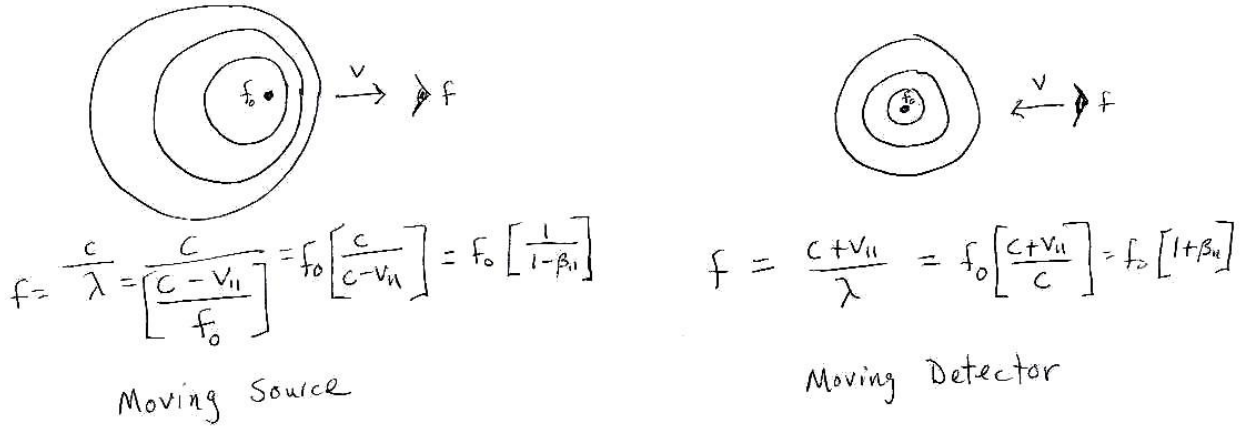 f₀ v f
f = c/λ = c/[(c - v∥)/f₀] = f₀[c/(c - v∥)] = f₀[1/(1 - β∥)]
Moving Source
f₀ v f
f = (c + v∥)/λ = f₀[(c + v∥)/c] = f₀[1 + β∥]
Moving Detector